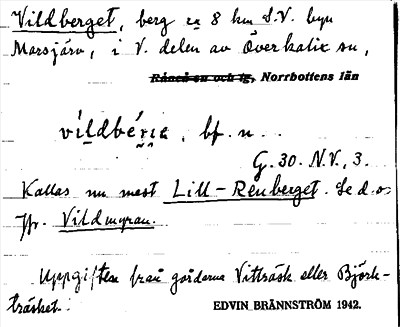 Vildberget, berg ca 8 km S.V. byn
Marsjärv, i V. delen av Överkalix sn,
Råneå sn och tg, Norrbottens län
víldbérıa, bf. n.
G. 30. N.V., 3.
Kallas nu mest Lill-Renberget. Se d.o.
Jfr. Vildmyran.
Uppgiften från gårdarna Vitträsk eller Björk-
träsket.
EDVIN BRÄNNSTRÖM 1942.